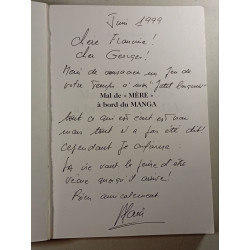 Juin 1999
Chère Francine!
Cher Georges!
Merci de consacrer un peu de
votre temps à mon "petit
Mal de « MÈRE »
à bord du MANGA
tout ce qui est écrit est vrai
mais tout n'a pas été dit!
Cependant je confirme:
La vie vaut la peine d'être
vécue quoiqu'il arrive!
Bien amicalement